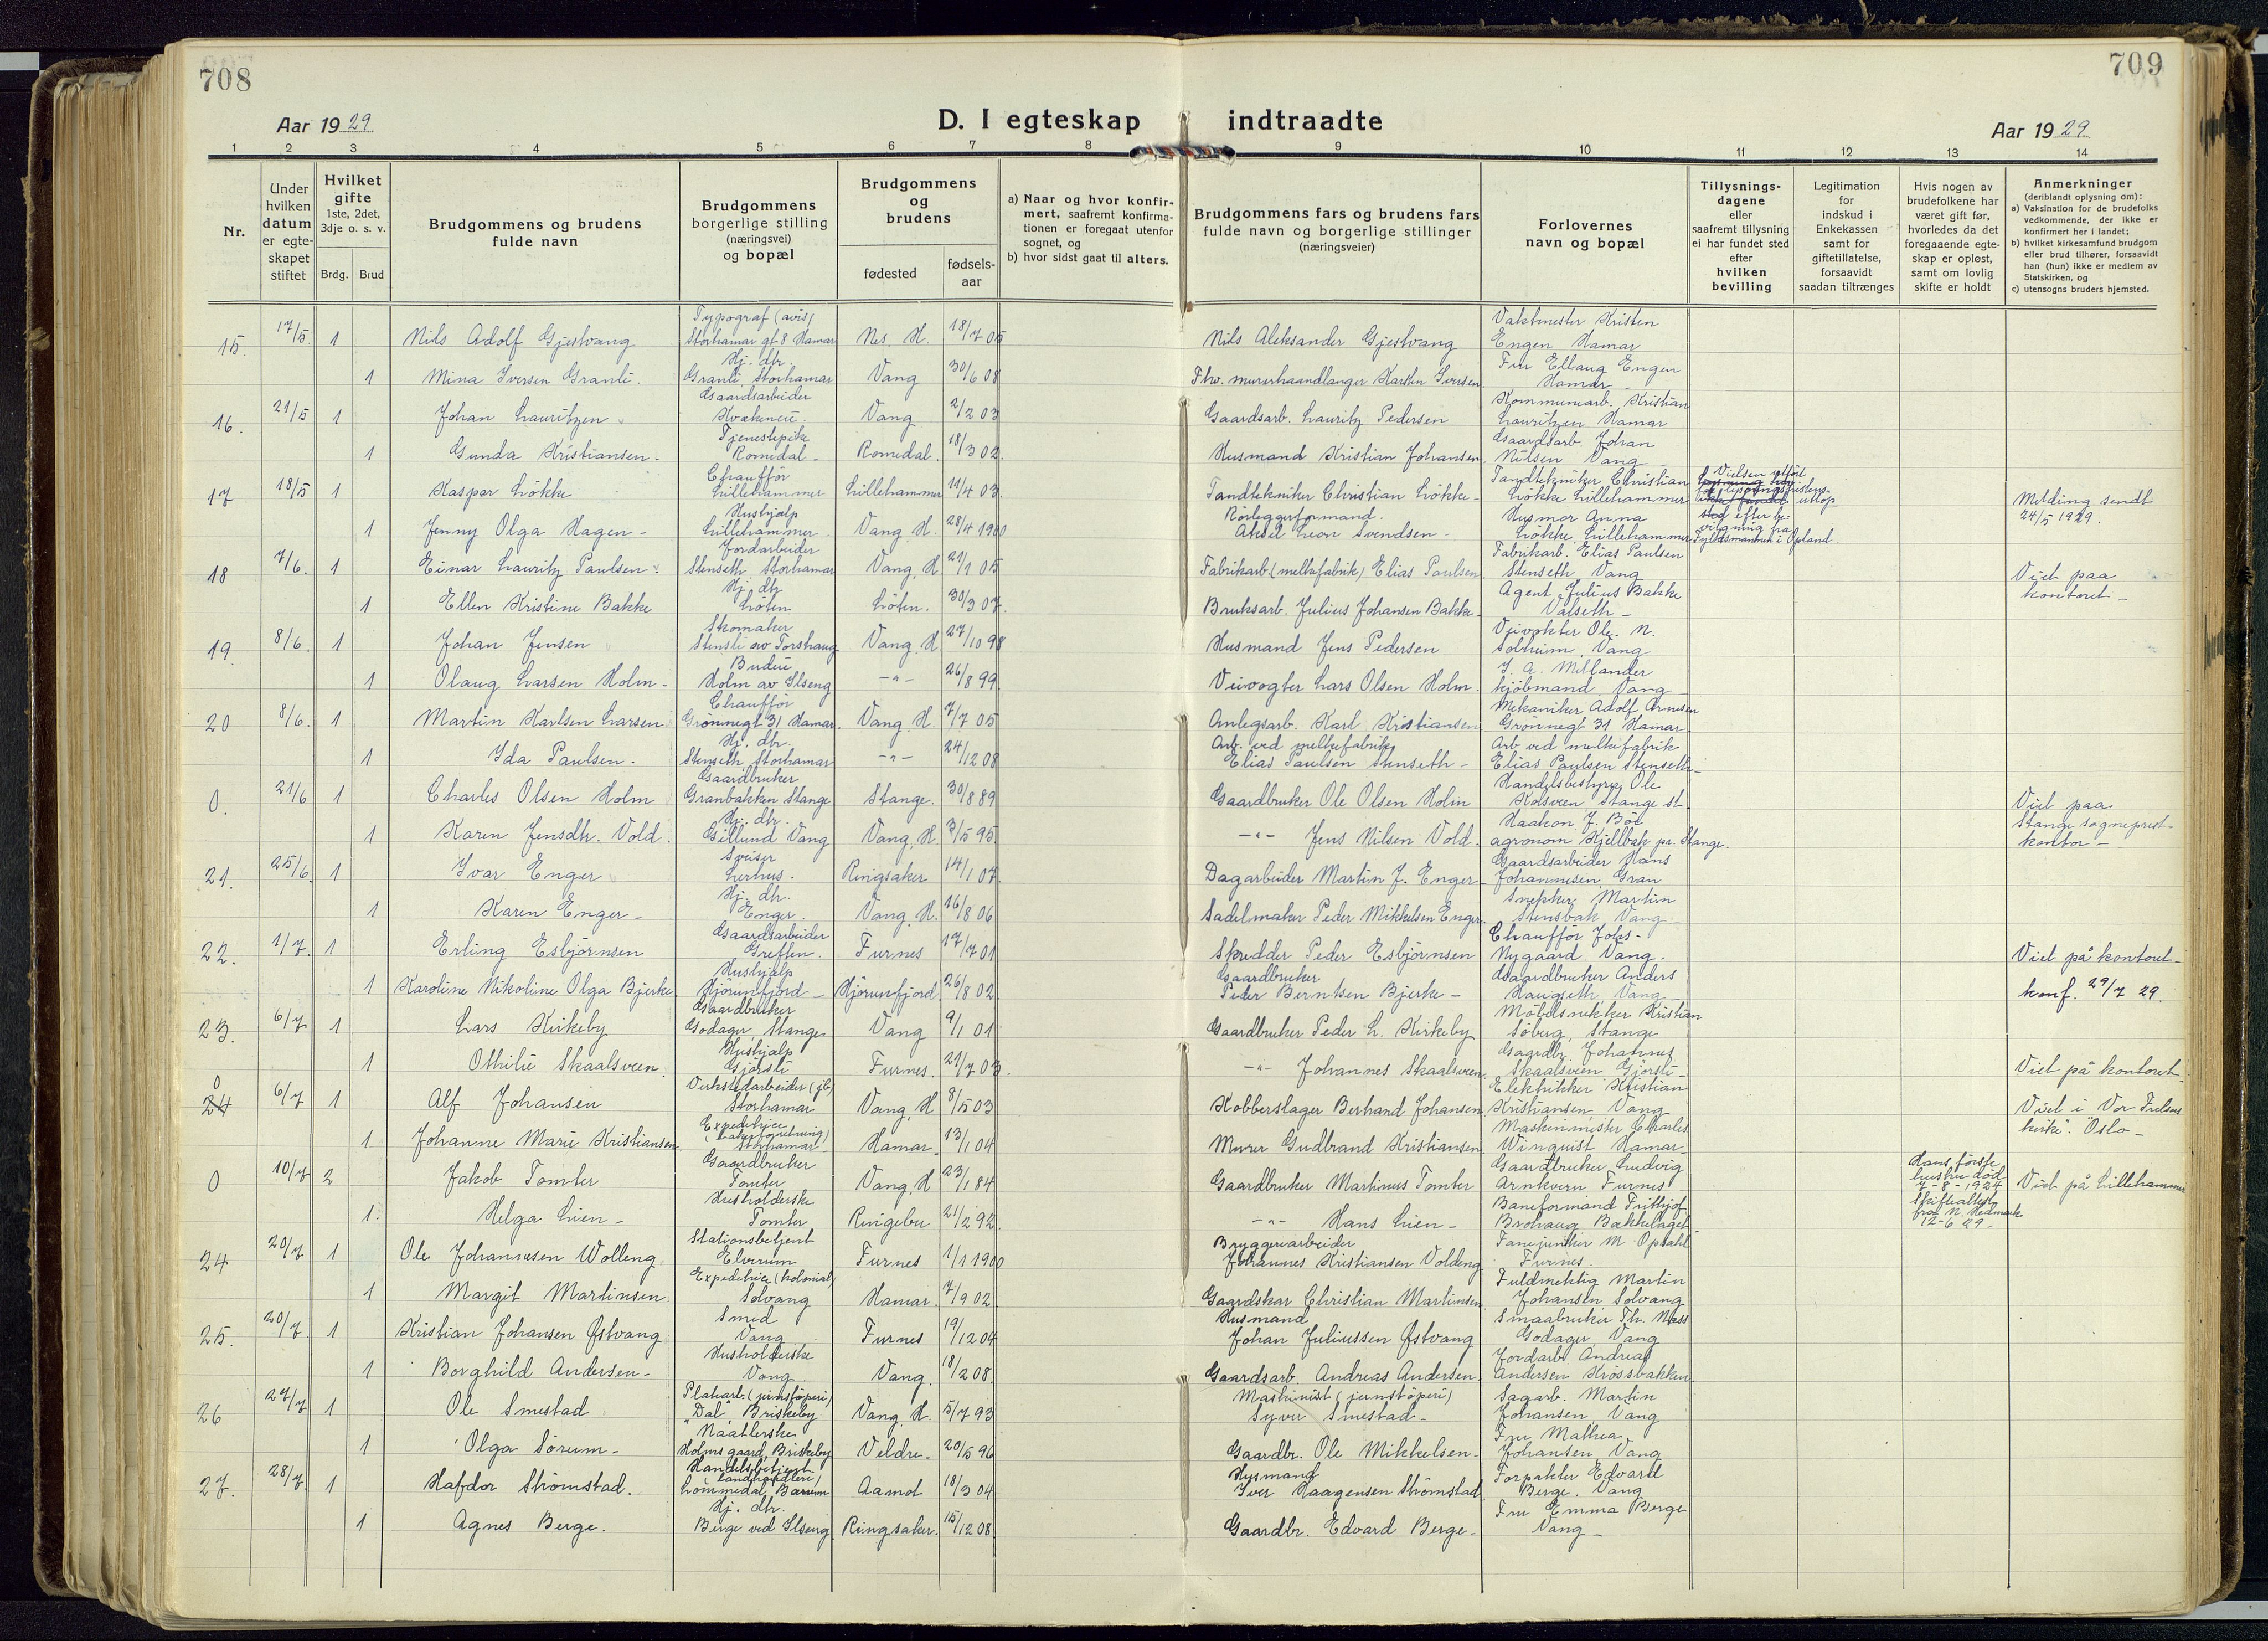 708
709
Aar 1929
D. I egteskap indtraadte
Aar 1929
1 2 3 4 5 6 7 8 9 10 11 12 13 14
Nr.
Under hvilken datum er egte-skapet stiftet
Hvilket gifte
1ste, 2det, 3dje o. s. v.
Brdg. Brud
Brudgommens og brudens fulde navn
Brudgommens borgerlige stilling (næringsvei) og bopæl
Brudgommens og brudens
fødested
fødsels-aar
a) Naar og hvor konfir-mert, saafremt konfirma-tionen er foregaat utenfor sognet, og
b) hvor sidst gaat til alters.
Brudgommens fars og brudens fars fulde navn og borgerlige stillinger (næringsveier)
Forlovernes navn og bopæl
Tillysnings-dagene eller saafremt tillysning ei har fundet sted efter hvilken bevilling
Legitimation for indskud i Enkekassen samt for giftetillatelse, forsaavidt saadan tiltrænges
Hvis nogen av brudefolkene har været gift før, hvorledes da det foregaaende egte-skap er opløst, samt om lovlig skifte er holdt
Anmerkninger (deriblandt oplysning om):
a) Vaksination for de brudefolks vedkommende, der ikke er konfirmert her i landet;
b) hvilket kirkesamfund brudgom eller brud tilhører, forsaavidt han (hun) ikke er medlem av Statskirken, og
c) utensogns bruders hjemsted.
15. 17/5. 1 Nils Adolf Gjestvang Typograf (avis) Storhamar gt 8 Hamar Nes. H. 18/7 05 Nils Aleksander Gjestvang Vaktmester Kristen Engen Hamar
1 Mina Iversen Granli. Hj. dtr. Granli, Storhamar Vang 30/6 08 Fhv. murerhaandlanger Karsten Iversen Fru Ellaug Engen Hamar
16. 21/5 1 Johan Lauritzen Gaardsarbeider Vang 2/2 03 Gaardsarb. Lauritz Pedersen Kommunearb. Kristian Lauritzen Hamar
1 Gunda Kristiansen Tjenestepike Romedal Romedal. 18/3 02 Husmand Kristian Johansen Gaardsarb. Johan Nilsen Vang
17 18/5 1 Kaspar Løkke Chauffør Lillehammer Lillehammer 11/4 03 Tandtekniker Christian Løkke Tandtekniker Christian Løkke Lillehammer Melding sendt 24/5 1929.
1 Jenny Olga Hagen Hushjælp Lillehammer Vang. H. 28/4 1900 Rørleggerformand. Aksel Leon Svendsen Husmor Anna Løkke, Lillehammer efter bevilgning fra Fylkesmanden i Opland.
18 7/6. 1 Einar Lauritz Paulsen Jordarbeider Stenseth Storhamar Vang. H 21/1 05 Fabrikarb. (melkefabrik) Elias Paulsen Fabrikarb. Elias Paulsen Stenseth Vang Viet paa kontoret
1 Ellen Kristine Bakke Hj. dtr Løten Løten. 30/3 07. Bruksarb. Julius Johansen Bakke Agent Julius Bakke Valseth
19. 8/6. 1 Johan Jensen Skomaker Stensli av Torshaug Vang. H 27/10 98 Husmand Jens Pedersen Veivokter Ole. N. Solheim, Vang
1 Olaug Larsen Holm Budeie Holm av Ilseng -"- 26/8 99 Veivogter Lars Olsen Holm J. A. Mellander kjøbmand. Vang
20 8/6. 1 Martin Karlsen Larsen Chauffør Grønnegt. 31 Hamar. Vang. H. 7/7 05 Anlegsarb. Karl Kristiansen Mekaniker Adolf Arnesen Grønnegt 31 Hamar
1 Ida Paulsen. Hj. dtr. Stenseth, Storhamar -"- 24/12 08 Arb. ved melkefabrik, Elias Paulsen Stenseth Arb ved melkefabrik Elias Paulsen Stenseth
0. 21/6 1 Charles Olsen Holm Gaardbruker Granbakken Stange Stange. 30/8 89 Gaardbruker Ole Olsen Holm Handelsbestyrer Ole Kolsveen, Stange st. Viet paa Stange sogneprest-kontor
1 Karen Jensdtr. Vold. Hj. dtr. Gillund Vang Vang. H. 3/5 95 -"- Jens Nilsen Vold. Haakon J. Bøe agronom Kjellbak pr. Stange.
21. 25/6. 1 Ivar Enger Sveiser Lerhus. Ringsaker 14/1 07 Dagarbeider Martin J. Enger Gaardsarbeider Hans Johannesen Gran
1 Karen Enger Hj. dtr. Enger. Vang. H. 16/8 06 Sadelmaker Peder Mikkelsen Enger. Snekker Martin Stensbak Vang.
22. 1/7. 1 Erling Esbjørnsen Gaardsarbeider Greffen. Furnes 17/7 01 Skredder Peder Esbjørnsen Chauffør Johs. Nygaard Vang. Viet på kontoret
1 Karoline Nikoline Olga Bjerke Hushjælp Hjørunfjord Hjørunfjord 26/8 02 Gaardbruker Peder Berntsen Bjerke Gaardbruker Anders Haugseth Vang konf. 29/7 29.
23. 6/7 1 Lars Kirkeby Gaardbruker Godager, Stange Vang 9/1 01 Gaardbruker Peder L. Kirkeby Møbelsnekker Kristian Søberg, Stange
1 Othilie Skaalsveen. Hushjælp Gjørsli Furnes. 29/7 03. -"- Johannes Skaalsveen Gaardbr. Johannes Skaalsveen Gjørsli Viet på kontoret
0 24 6/7 1 Alf Johansen Verkstedarbeider (jb) Storhamar Vang. H 8/5 03 Kobberslager Berhand Johansen Elektrikker Kristian Kristiansen. Vang Viet i "Vor Frelsers kirke". Oslo
1 Johanne Marie Kristiansen Expeditrice (bakerforretning) Storhamar Hamar 13/1 04 Murer Gudbrand Kristiansen Maskinmester Charles Winquist Hamar
0 10/7 2 Jakob Tomter Gaardbruker Tomter Vang. H 23/1 84 Gaardbruker Martinus Tomter Gaardbruker Ludvig Arnkvern Furnes Hans første hustru død 7-8-1924 Skifteattest fra N. Hedmark 12-6 29 Viet på Lillehammer
1. Helga Lien Husholderske Tomter Ringebu 21/2 92. -"- Hans Lien Baneformand Frithjof Brohaug Bækkelaget
24 20/7 1 Ole Johannesen Wolleng Stationsbetjent Elverum Furnes 1/1 1900 Bryggeriarbeider Johannes Kristiansen Voldeng Fanejunker M. Opsahl Furnes.
1 Margit Martinsen. Expeditrice (kolonial) Solvang Hamar. 7/9 02 Gaardskar Christian Martinsen Fuldmektig Martin Johansen, Solvang
25. 20/7 1 Kristian Johansen Østvang Smed Vang Furnes 19/12 04 Husmand Johan Juliussen Østvang Smaabruker Th. Godager Vang
1 Borghild Andersen Husholderske Vang Vang. 18/2 08. Gaardsarb. Andreas Andersen Jordarb. Andreas Andersen Krossbakken
26 27/7 1 Ole Smestad Platearb. (jernstøperi) "Dal", Briskeby Vang. H. 5/7 93 Maskinist (jernstøperi) Syver Smestad Sagarb. Martin Johansen, Vang
1 Olga Sørum Naatlerske Holmsgaard, Briskeby Veldre. 20/5 96 Gaardbr. Ole Mikkelsen Fru Mathea Johansen, Vang
27. 28/7. 1 Hafdor Strømstad. Handelsbetjent (landhandleri) Lommedal. Bærum Aamot 18/3 04 Husmand Iver Haagensen Strømstad Forpakter Edvard Berge. Vang
1 Agnes Berge. Hj. dtr. Berge ved Ilseng Ringsaker. 15/12 08. Gaardbr. Edvard Berge Fru Emma Berge Vang